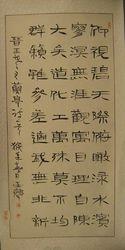 仰視碧天際俯瞰淥水濱
寥闃無涯觀寓目理自陳
大矣造化工萬殊莫不均
群籟雖參差適我無非新
晋王羲之蘭亭詩